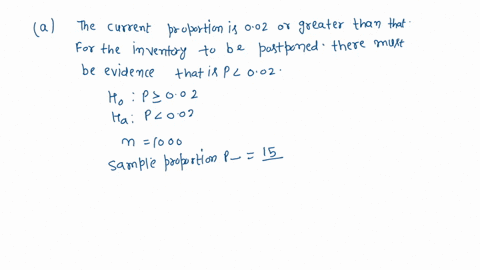 (a) The current proportion is 0.02 or greater than that.
For the inventory to be postponed. there must
be evidence that is P < 0.02.
H₀ : P ≥ 0.02
Hₐ : P < 0.02
n = 1000
Sample proportion P_ = 15